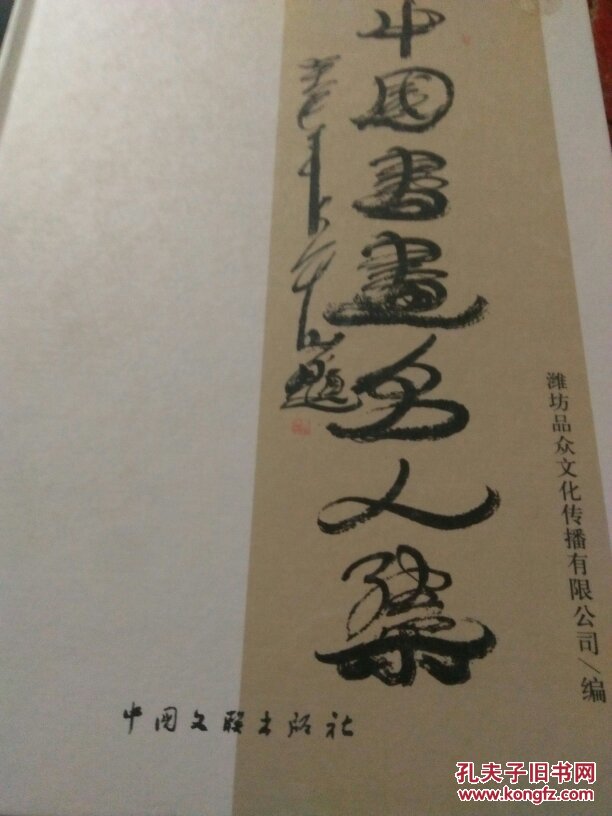 中国书画名人集
潍坊品众文化传播有限公司/编
中国文联出版社
孔夫子旧书网
www.kongfz.com